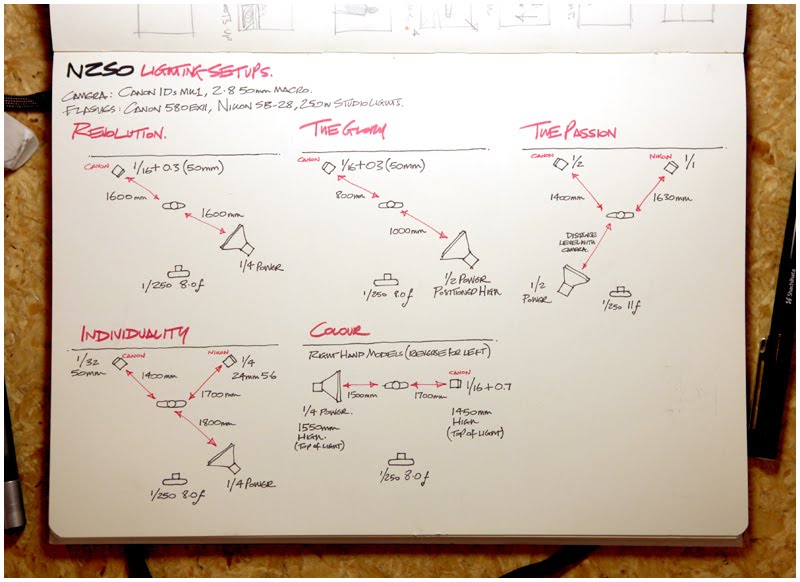 NZSO LIGHTING SETUPS.
CAMERA: CANON 1Ds MK1, 2.8 50mm MACRO.
FLASHGS: CANON 580EXII, NIKON SB-28, 250W STUDIO LIGHTS.
REVOLUTION.
CANON 1/16+0.3 (50mm)
1600mm
1600mm
1/4 POWER
1/250 8.0f
THE GLORY
CANON 1/16+03 (50mm)
800mm
1000mm
1/2 POWER
POSITIONED HIGH
1/250 8.0f
THE PASSION
CANON 1/2
NIKON 1/1
1400mm
1630mm
DISTANCE
LEVEL WITH
CAMERA.
1/2
POWER
1/250 11f
INDIVIDUALITY
1/32 CANON
50mm
NIKON 1/4
24mm 5.6
1400mm
1700mm
1800mm
1/4 POWER
1/250 8.0f
COLOUR
RIGHT HAND MODELS (REVERSE FOR LEFT)
CANON
1500mm
1700mm
1/16+0.7
1/4 POWER.
1550mm
HIGH.
(TOP OF LIGHT)
1450mm
HIGH
(TOP OF LIGHT)
1/250 8.0f
Shachihata